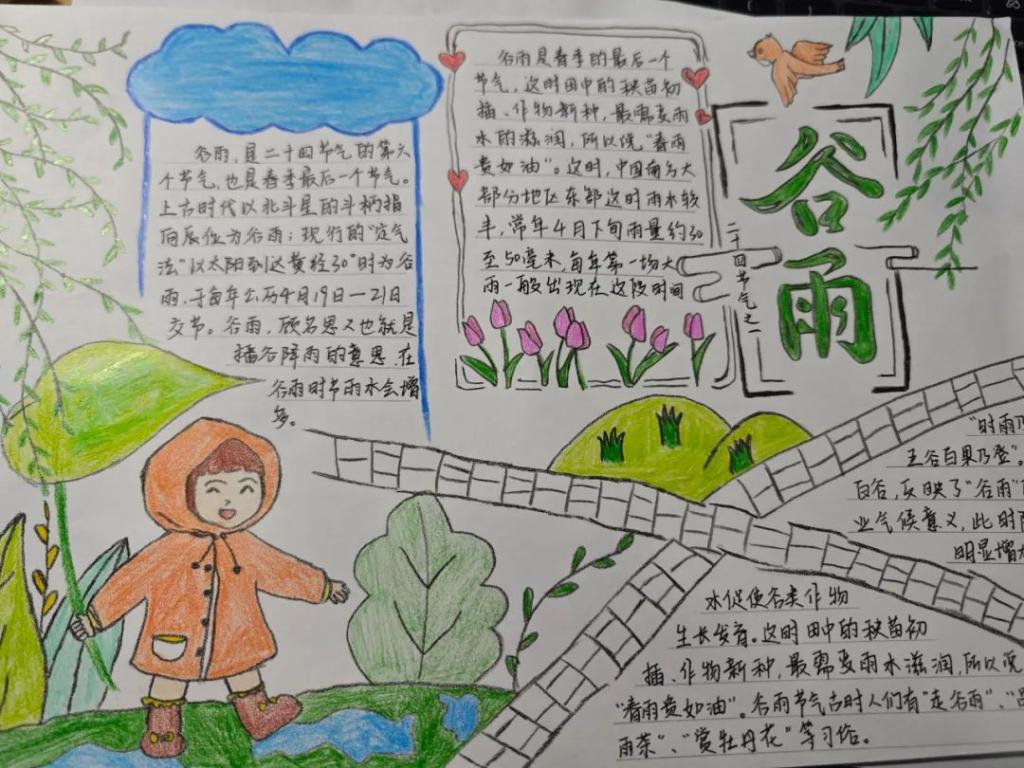 谷雨，是二十四节气的第六
个节气，也是春季最后一个节气。
上古时代以北斗星的斗柄指
向辰位为谷雨；现行的"定气
法"以太阳到达黄经30°时为谷
雨，于每年公历4月19日—21日
交节。谷雨，顾名思义也就是
播谷降雨的意思，在
谷雨时节雨水会增
多。
谷雨是春季的最后一个
节气，这时田中的秧苗初
插、作物新种，最需要雨
水的滋润，所以说"春雨
贵如油"。这时，中国南方大
部分地区东部这时雨水较
丰，常年4月下旬雨量约30
至50毫米，每年第一场大
雨一般出现在这段时间
谷雨
二十四节气之一
"时雨乃
五谷百果乃登"。
百谷，反映了"谷雨"
业气候意义，此时
明显增
水促使各类作物
生长发育。这时田中的秧苗初
插、作物新种，最需要雨水滋润，所以说
"春雨贵如油"。谷雨节气古时人们有"走谷雨"、"品
雨茶"、"赏牡丹花"等习俗。